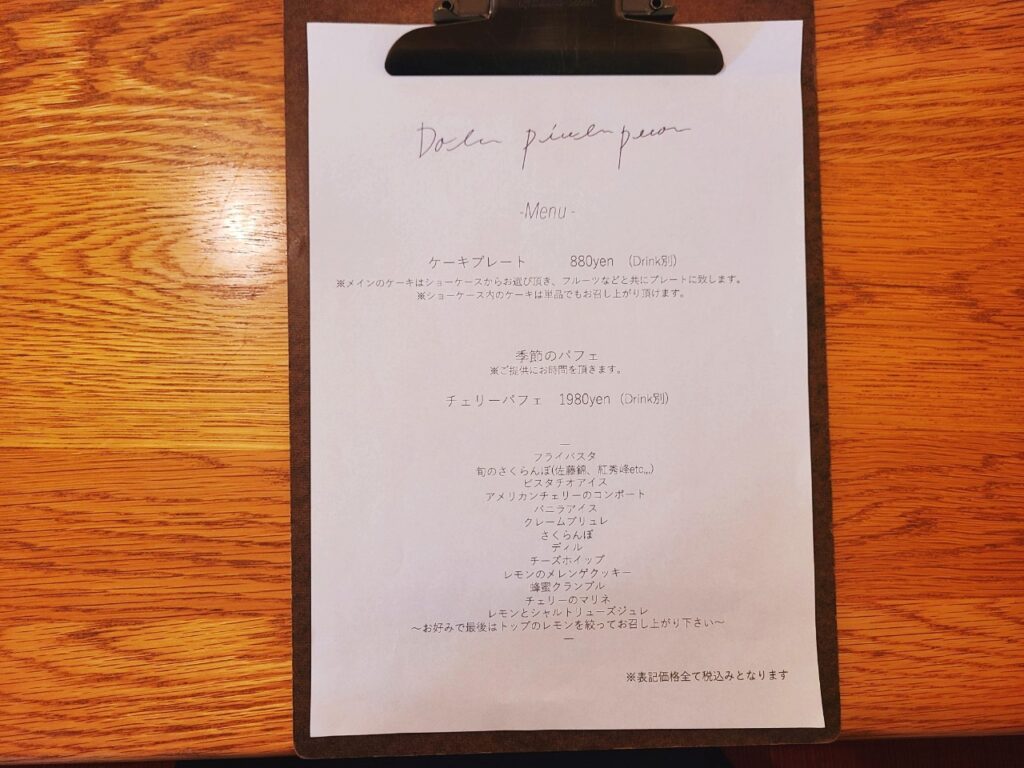 -Menu-
ケーキプレート 880yen (Drink別)
※メインのケーキはショーケースからお選び頂き、フルーツなどと共にプレートに致します。
※ショーケース内のケーキは単品でもお召し上がり頂けます。
季節のパフェ
※ご提供にお時間を頂きます。
チェリーパフェ 1980yen (Drink別)
—
フライパスタ
旬のさくらんぼ(佐藤錦、紅秀峰etc,,,)
ピスタチオアイス
アメリカンチェリーのコンポート
バニラアイス
クレームブリュレ
さくらんぼ
ディル
チーズホイップ
レモンのメレンゲクッキー
蜂蜜クランブル
チェリーのマリネ
レモンとシャルトリューズジュレ
～お好みで最後はトップのレモンを絞ってお召し上がり下さい～
—
※表記価格全て税込みとなります